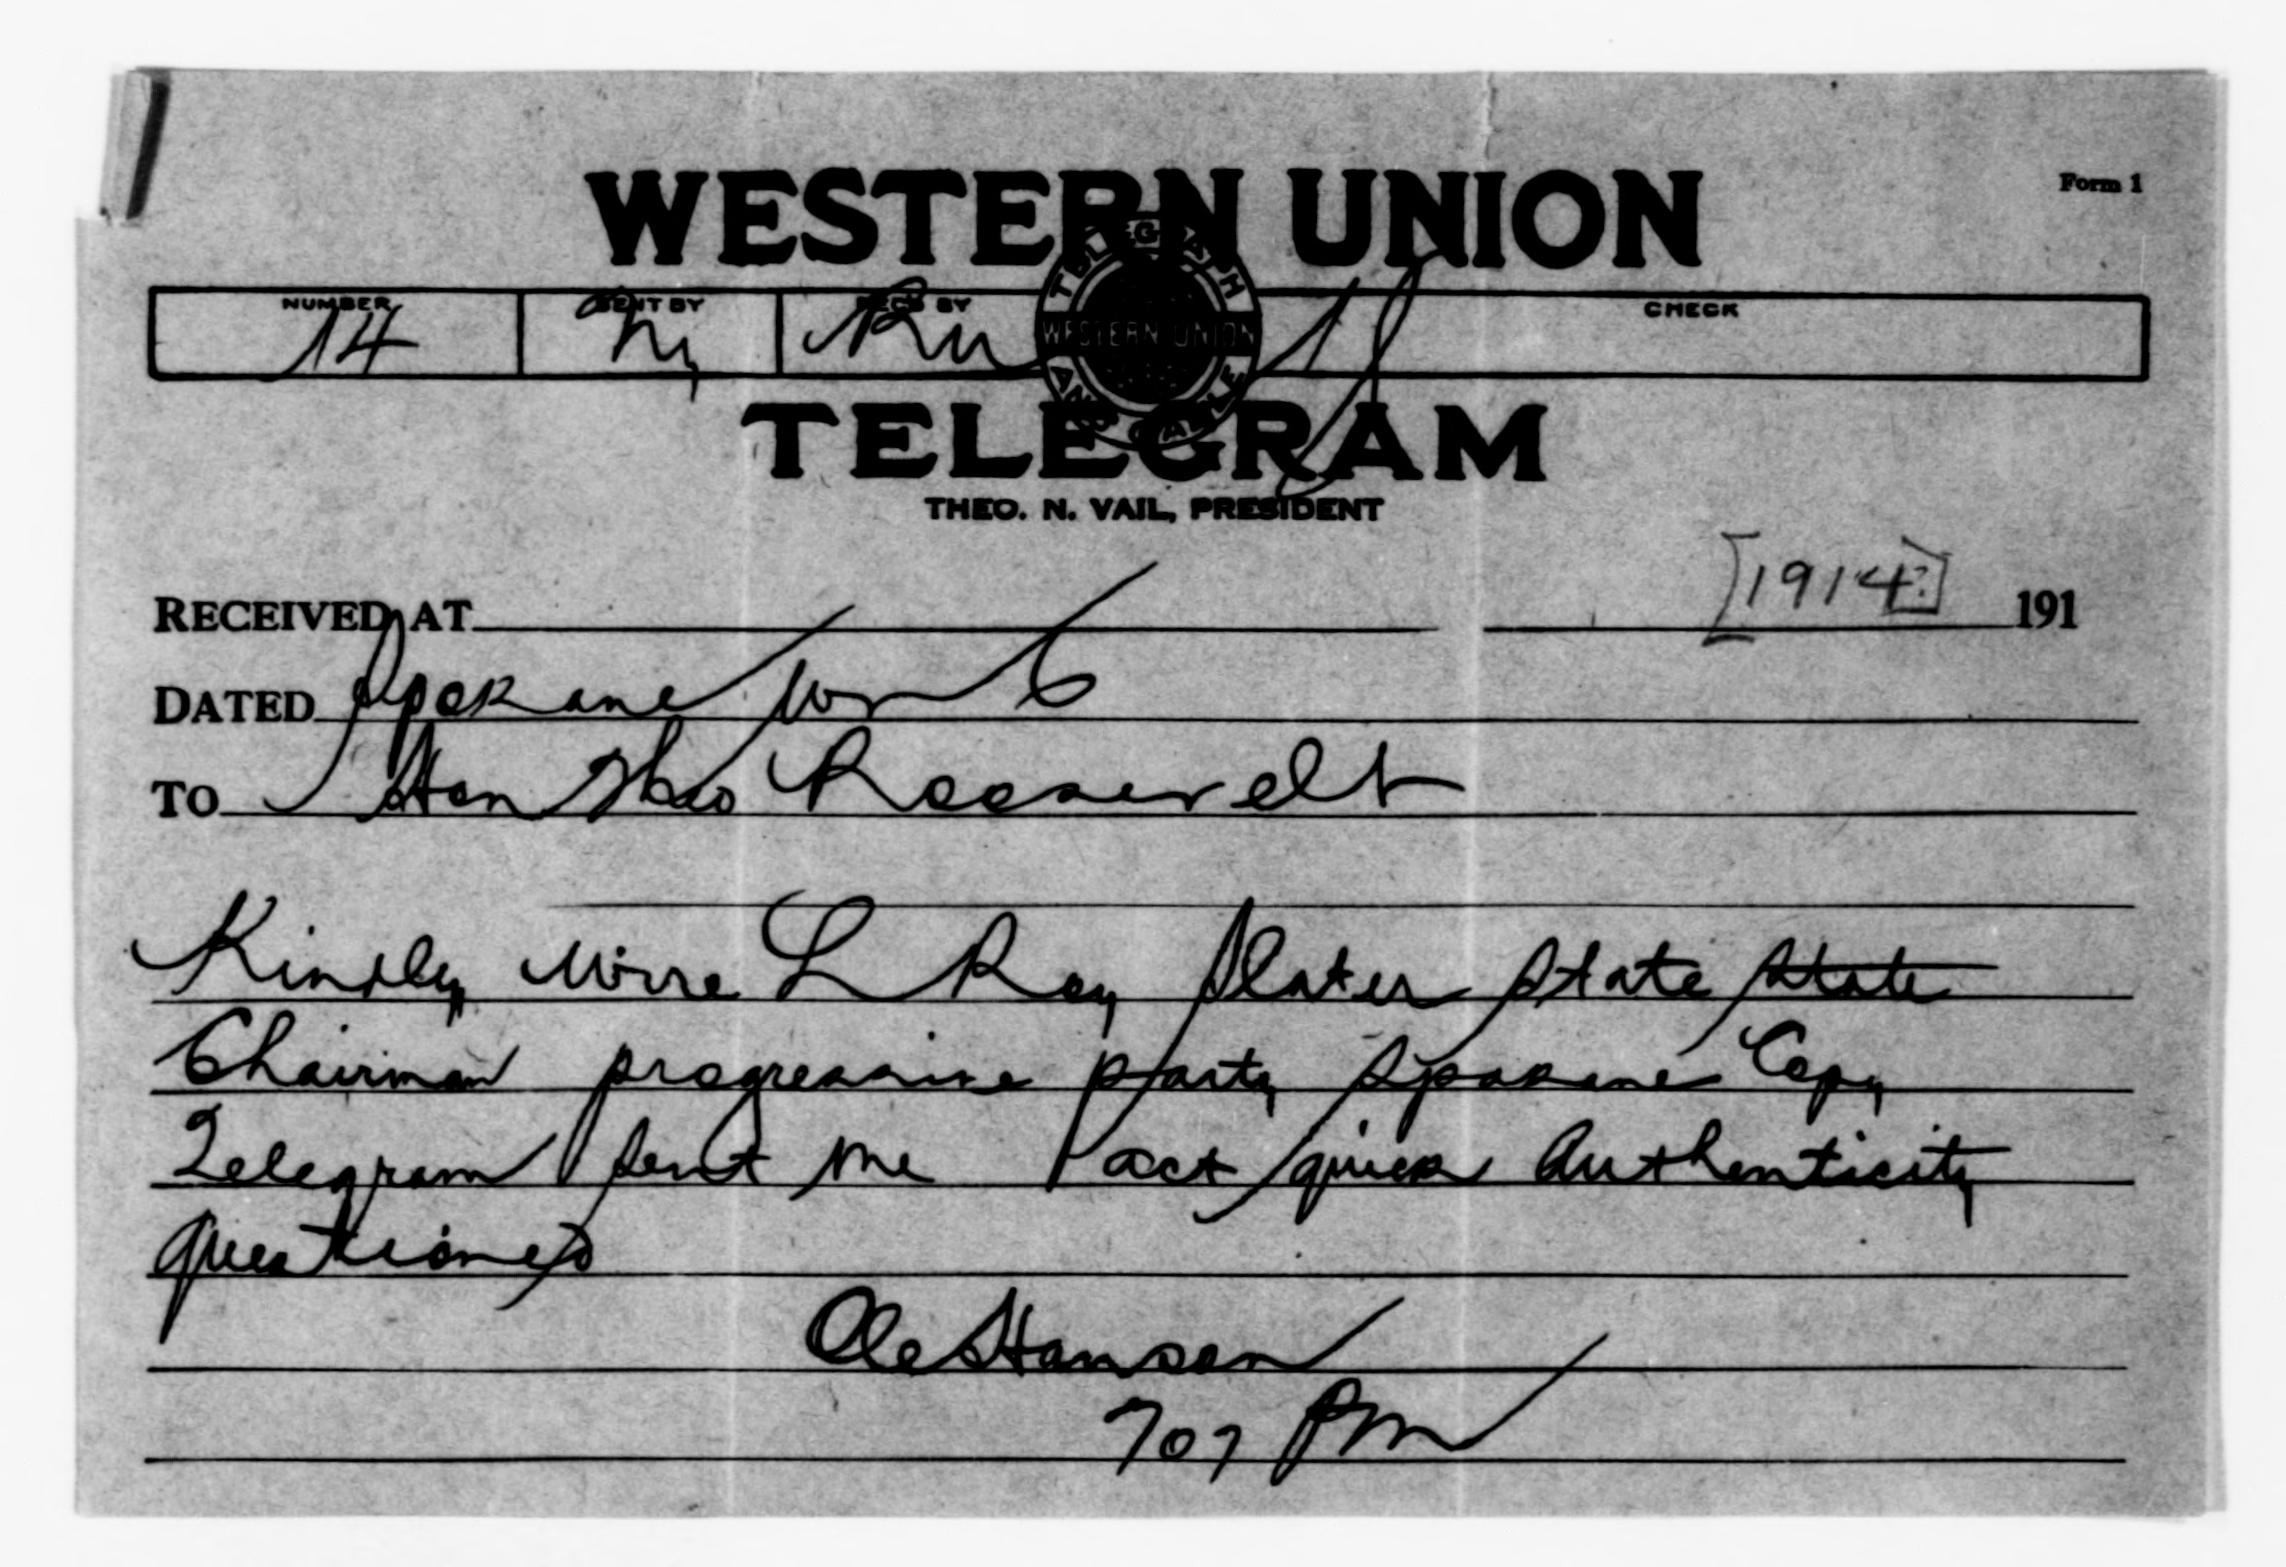 Form 1
WESTERN UNION
TELEGRAPH AND CABLE
WESTERN UNION
NUMBER SENT BY REC'D BY CHECK
14 Ny Ru
TELEGRAM
THEO. N. VAIL, PRESIDENT
RECEIVED AT [1914?] 191
DATED Spokane Wn 6
TO Hon Theo Roosevelt
Kindly wire L Roy Slater State State
Chairman progressive party Spokane Copy
Telegram sent me act quick Authenticity
questioned
Ole Hanson
707 Pm